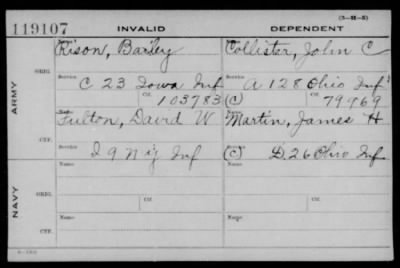 (3-M-5)
119107 INVALID DEPENDENT
Name Name
Rison, Bailey Collister, John C
Service Service
C 23 Iowa Inf A 128 Ohio Inf
ORIG.
Ctf. 103783 (C) Ctf. 79769
ARMY
Name Name
Fulton, David W Martin, James H
CTF.
Service Service
I 9 N Y Inf (C) D. 26 Ohio Inf
Name Name
ORIG.
Service Service
NAVY
Name Name
CTF.
Service Service